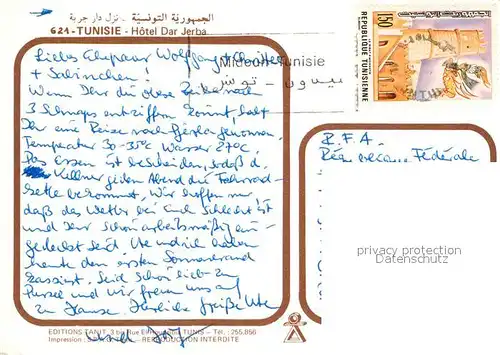 الجمهورية التونسية - نزل دار جربة
624 - TUNISIE - Hôtel Dar Jerba
Liebes Ehepaar Wolfgang
+ Sabinchen!
Midoun Tunisie
ميدون - تونس
150
REPUBLIQUE TUNISIENNE
Wenn Ihr diese nach
3 Schnaps entziffern könnt, habt
Ihr eine Reise nach Djerba gewonnen.
Temperatur 30-35°C Wasser 27°C.
Das Essen ist bescheiden, sodaß d.
Kellner jeden Abend die Fahrrad-
kette bekommt. Wir hoffen nur
daß das Wetter bei Euch schlecht ist
und Ihr schon arbeitsmäßig ein-
gedeckt seid. Ute und ich haben
heute den ersten Sonnenbrand
kassiert. Seid schön lieb zu
und wir freuen uns auf
zu Hause. Herzliche Grüße Ute
B.F.A.
Fédérale
privacy protection
Datenschutz
EDITIONS TANIT, 3 bis Rue TUNIS - Tél.: 255.856
Impression : REPRODUCTION INTERDITE